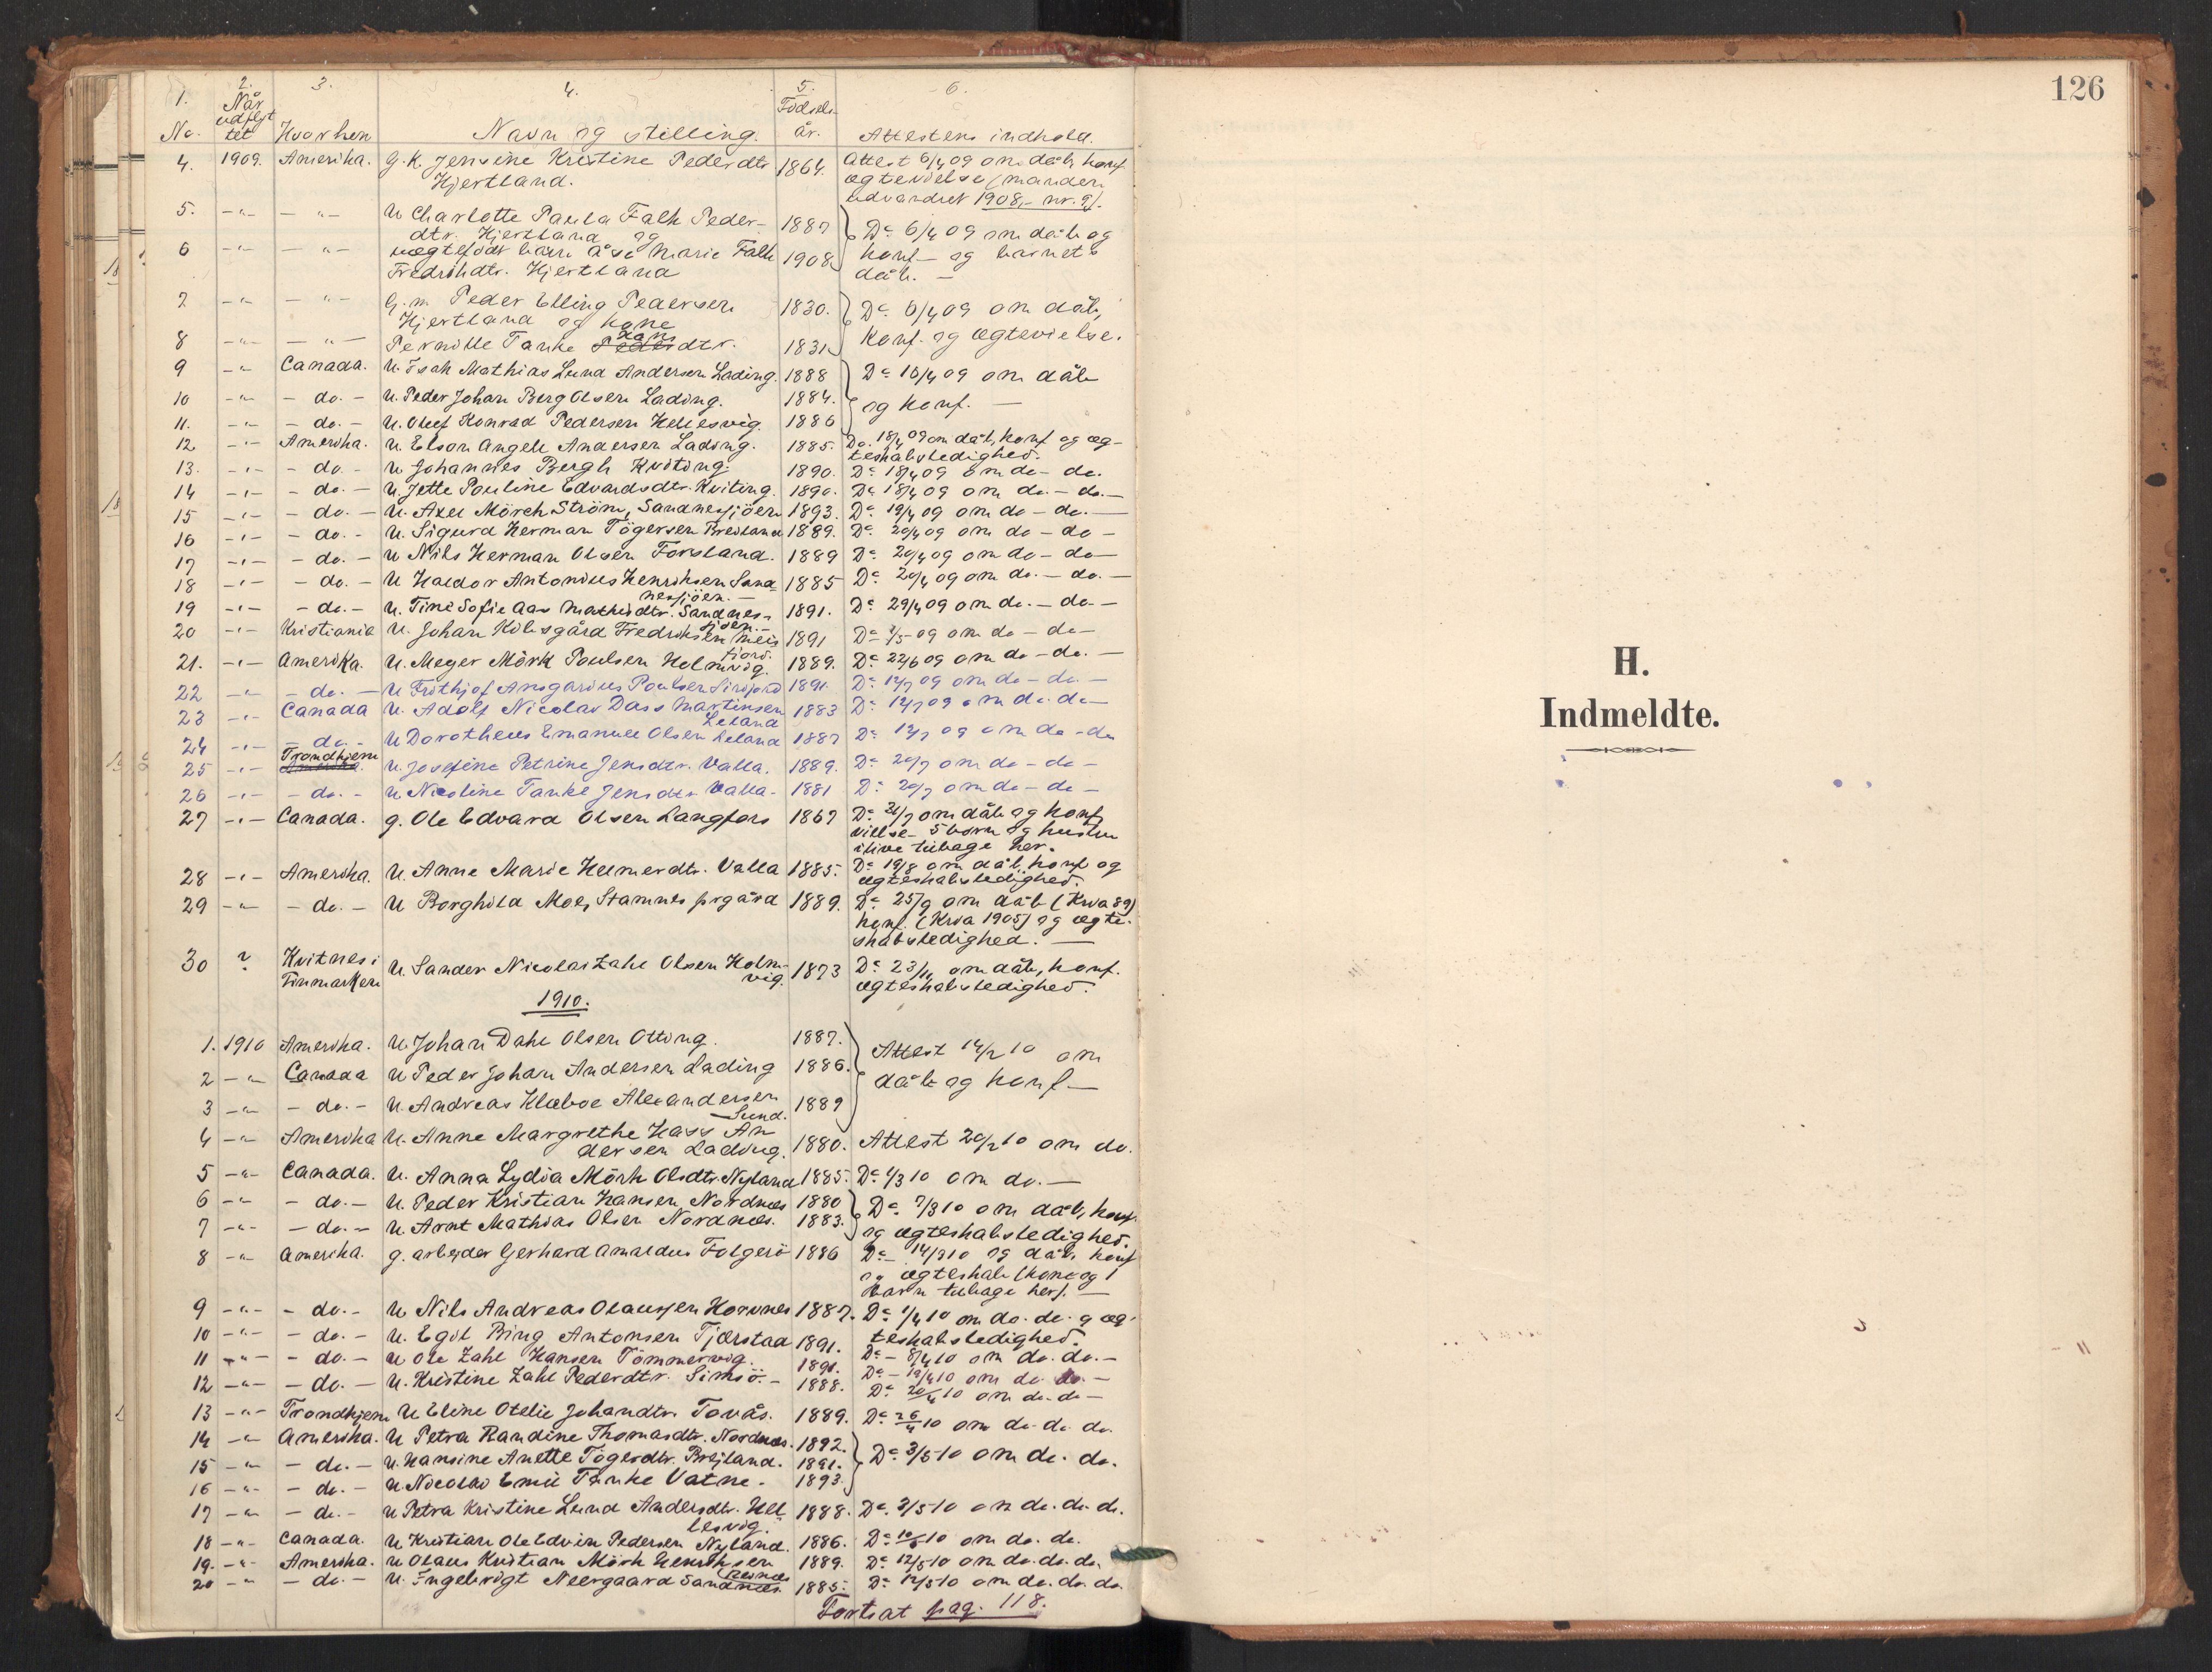 1. 2. 3. 4. 5. 6.
No. Når udflyttet Hvorhen Navn og stilling. Fødselsår. Attestens indhold.
4. 1909. Amerika. G. K. Jensine Kristine Pedersdtr 1864. Attest 6/4 09 om dåb, konf
Hjertland. ægtevielse (manden
udvandret 1908, nr. 9).
5. -"- - "- U Charlotte Paula Falk Peder- 1887 Do 6/4 09 om dåb og
dtr. Hjertland og
6 -"- - "- uægtefödt barn Åse Marie Falk 1908 konf- og barnets
Fredrikdtr. Hjertland dåb. -
7 -"- - "- G. m. Peder Elling Pedersen 1830. Do 6/4 09 om dåb,
Hjertland og kone
8 -"- - "- Pernille Tanke Peder Zan dtr. 1831 Konf. og ægtevielse.
9 -"- Canada. U. Isak Mathias Lund Andersen Lading. 1888 Do 16/4 09 om dåb
10 -"- - do. - U. Peder Johan Berg Olsen Lading. 1884. og konf. -
11. -"- - do. - U. Oluf Konrad Pedersen Hellesvig. 1886
12 -"- Amerika. U. Elson Angell Andersen Lading. 1885. Do. 18/4 09 om dåb, konf og æg-
teskabsledighed.
13. -"- - do. - U Johannes Bergh Kviting. 1890. Do 18/4 09 om do- do.
14 -"- - do. - U. Jette Pauline Edvardsdtr. Kviting. 1890. Do 18/4 09 om do. - do. -
15 -"- - do. - U. Axel Mörch Ström, Sandnessjöen 1893. Do 19/4 09 om do - do. -
16 -"- - do. - U. Sigurd Herman Tögersen Breiland 1889. Do 20/4 09 om do - do -
17 -"- - do. - U Nils Herman Olsen Forsland. 1889 Do 20/4 09 om do - do -
18 -"- - do. - U Haldor Antonius Henriksen Sand- 1885 Do 20/4 09 om do. - do. -
nessjöen. -
19 -"- - do. - U. Tine Sofie Aas Mathisdtr. Sandnes- 1891. Do 29/4 09 om do. - do. -
sjöen. -
20 -"- Kristiania U. Johan Kolsgård Fredriksen Meis 1891 Do /5 09 om do - do -
fjord.
21. -"- Amerika. U. Meyer Mörk Poulsen Holmvig. 1889. Do 22/6 09 om do - do. -
22 -"- - do. - U Frithjof Ansgarius Poulsen 1891. Do 14/7 09 om do - do -
23 -"- Canada U. Adolf Nicolai Dass Martinsen 1883 Do 14/7 09 om do. do -
Leland
24 -"- - do. - U Dorotheus Emanuel Olsen Leland 1887 Do 14/7 09 om do - do
25 -"- Trondhjem Amerika. U. Josefine Petrine Jensdtr. Valla. 1889. Do 20/7 om do - do -
26 -"- - do. - U. Nicoline Tanke Jensdtr Valla. 1881 Do 20/7 om do - do -
27 -"- Canada. g. Ole Edvard Olsen Langfors 1867 Do 21/7 om dåb og konf,
villse- 5 börn og hustru
tilbage her.
28 -"- Amerika. U. Anne Marie Helmerdtr. Valla 1885. Do 19/8 om dåb, konf og
ægteskabsledighed.
29 -"- - do. - U Borghild Moe, Stamnes prgård 1889. Do 25/9 om dåb (Krva 89)
konf. (Krva 1905) og ægte-
skabsledighed. -
30 ? Kvitnes i U. Sander Nicolai Zahl Olsen Holm- 1873 Do 23/11 om dåb, konf.
Finmarken vig. ægteskabsledighed.
1910.
1. 1910 Amerika. U Johan Dahl Olsen Otting. 1887. Attest 14/2 10 om
2 -"- Canada U Peder Johan Andersen Lading 1886. dåb og konf -
3 -"- - do. - U. Andreas Klæboe Alexandersen 1889
Sund.
4 -"- Amerika U. Anne Margrethe Hass An 1880. Attest 20/2 10 om do.
dersen Lading.
5 -"- Canada. U. Anna Lydia Mörk Olsdtr. Nyland 1885. Do 1/3 10 om do. -
6 -"- - do. - U. Peder Kristian Hansen Nordnæs 1880 Do 7/3 10 om dåb, konf.
7 -"- - do. - U. Arnt Mathias Olsen Nordnæs. 1883. og ægteskabsledighed.
8 -"- Amerika. g. arbejder Gerhard Amaldus Folgerö 1886 Do 14/3 10 og dåb konf
og ægteskab (kone og 1
barn tilbage her). -
9 -"- - do. - U Nils Andreas Olausen Hornnes 1887. Do 1/4 10 om do. do. g æg-
10 -"- - do. - U. Egil Bing Antonsen Tjærstad 1891. teskabsledighed.
11 -"- - do. - U. Ole Zahl Hansen Tömmervig. 1891. Do - 8/4 10 om do. do. -
12 -"- - do. - U. Kristine Zahl Pederdtr. Simsö. - 1888. Do - 19/4 10 om do do. -
Do 20/4 10 om do. do -
13 -"- Trondhjem U Eline Otelie Johandtr. Tovås. 1889. Do 26/4 10 om do. do. do.
14 -"- Amerika. U Petra Randine Thomasdtr. Nordnæs. 1892. Do 3/5 10 om do. do.
15 -"- - do. - U. Hansine Anette Tögerdtr. Brejland. 1891.
16 -"- - do. - U. Nicolai Emil Tanke Vatne. 1893.
17 -"- - do. - U Petra Kristine Lund Andersdtr. Hel 1888. Do. 3/5 10 om do. do. do.
lesvig.
18 -"- Canada. U Kristian Ole Edvin Pedersen Nyland. 1886. Do 10/5 10 om do. do.
19. -"- Amerika. U Olaus Kristian Mörk Henriksen 1889. Do 12/5 10 om do. do. do.
20 -"- - do. - U. Ingebrigt Neergaard Sandnæs. 1885. Do 12/5 10 om do. do. do.
Fortsat pag. 118.
126
H.
Indmeldte.